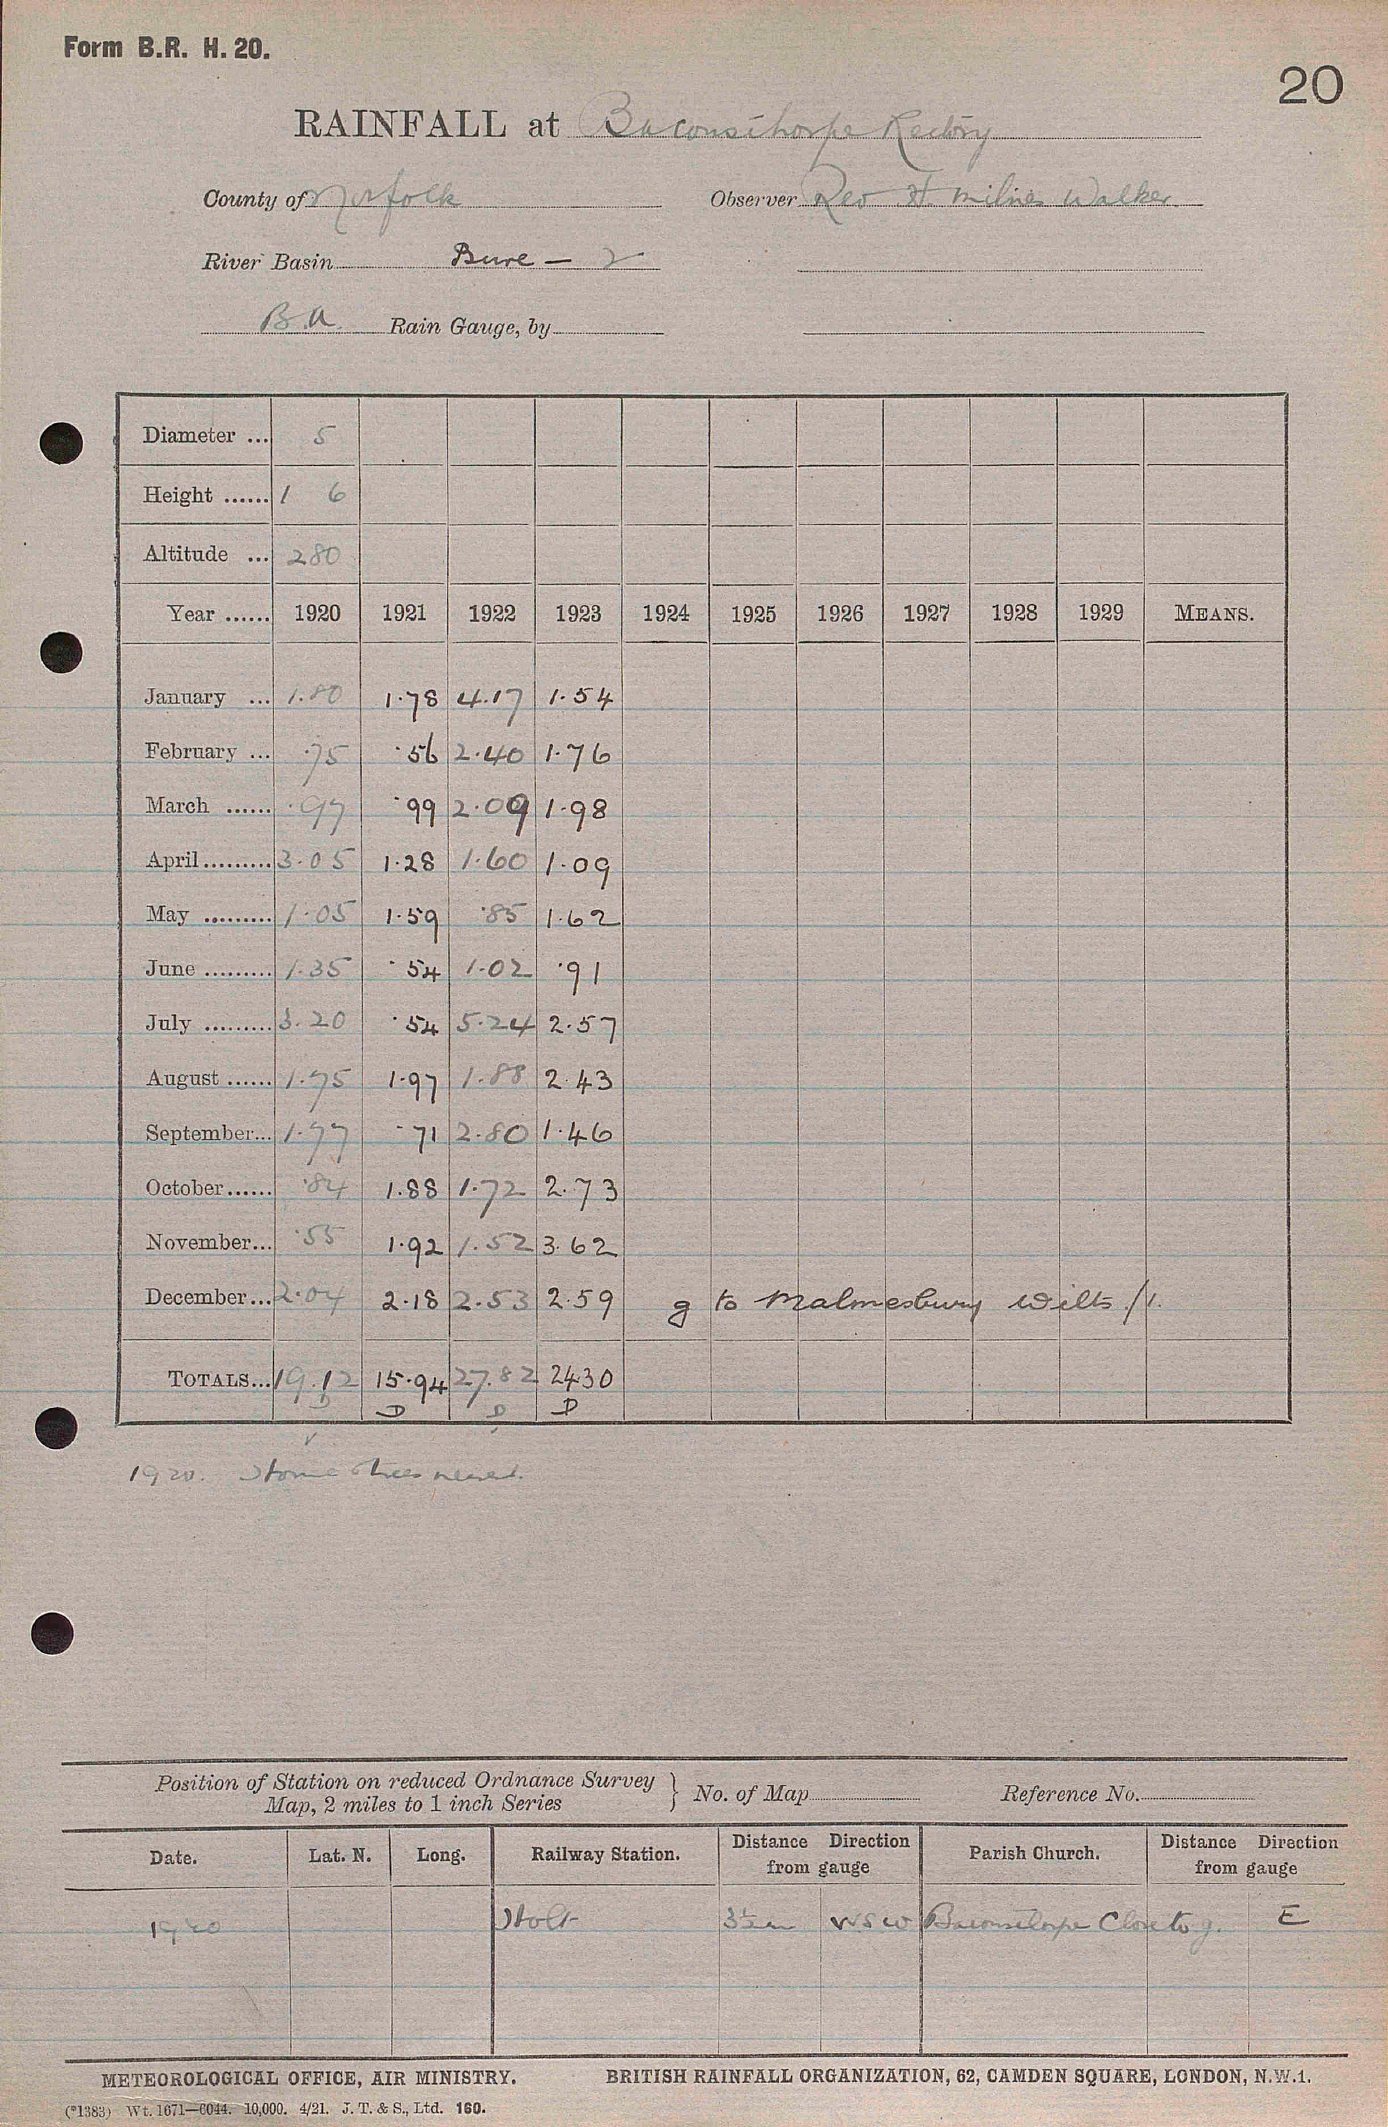 Form B.R. H. 20.
20
RAINFALL at Baconsthorpe Rectory
County of Norfolk Observer Rev H Milnes Walker
River Basin Bure — 2
B.A. Rain Gauge, by
Diameter ... 5
Height ...... 1 6
Altitude ... 280
Year ...... 1920 1921 1922 1923 1924 1925 1926 1927 1928 1929 MEANS.
January ... 1.80 1.78 4.17 1.54
February ... .75 .56 2.40 1.76
March ...... .97 .99 2.09 1.98
April ......... 3.05 1.28 1.60 1.09
May ......... 1.05 1.59 .85 1.62
June ......... 1.35 .54 1.02 .91
July ......... 3.20 .54 5.24 2.57
August ...... 1.75 1.97 1.88 2.43
September... 1.77 .71 2.80 1.46
October...... .84 1.88 1.72 2.73
November... .55 1.92 1.52 3.62
December... 2.04 2.18 2.53 2.59 g to Malmesbury Wilts /1.
TOTALS... 19.12 15.94 27.82 2430
D D D D
1920. Some trees near.
Position of Station on reduced Ordnance Survey
Map, 2 miles to 1 inch Series } No. of Map Reference No.
Date. Lat. N. Long. Railway Station. Distance Direction from gauge Parish Church. Distance Direction from gauge
1920 Holt 3½m WSW Baconsthorpe Close to g. E
METEOROLOGICAL OFFICE, AIR MINISTRY. BRITISH RAINFALL ORGANIZATION, 62, CAMDEN SQUARE, LONDON, N.W.1.
(*1383) Wt. 1671—6044. 10,000. 4/21. J. T. & S., Ltd. 160.